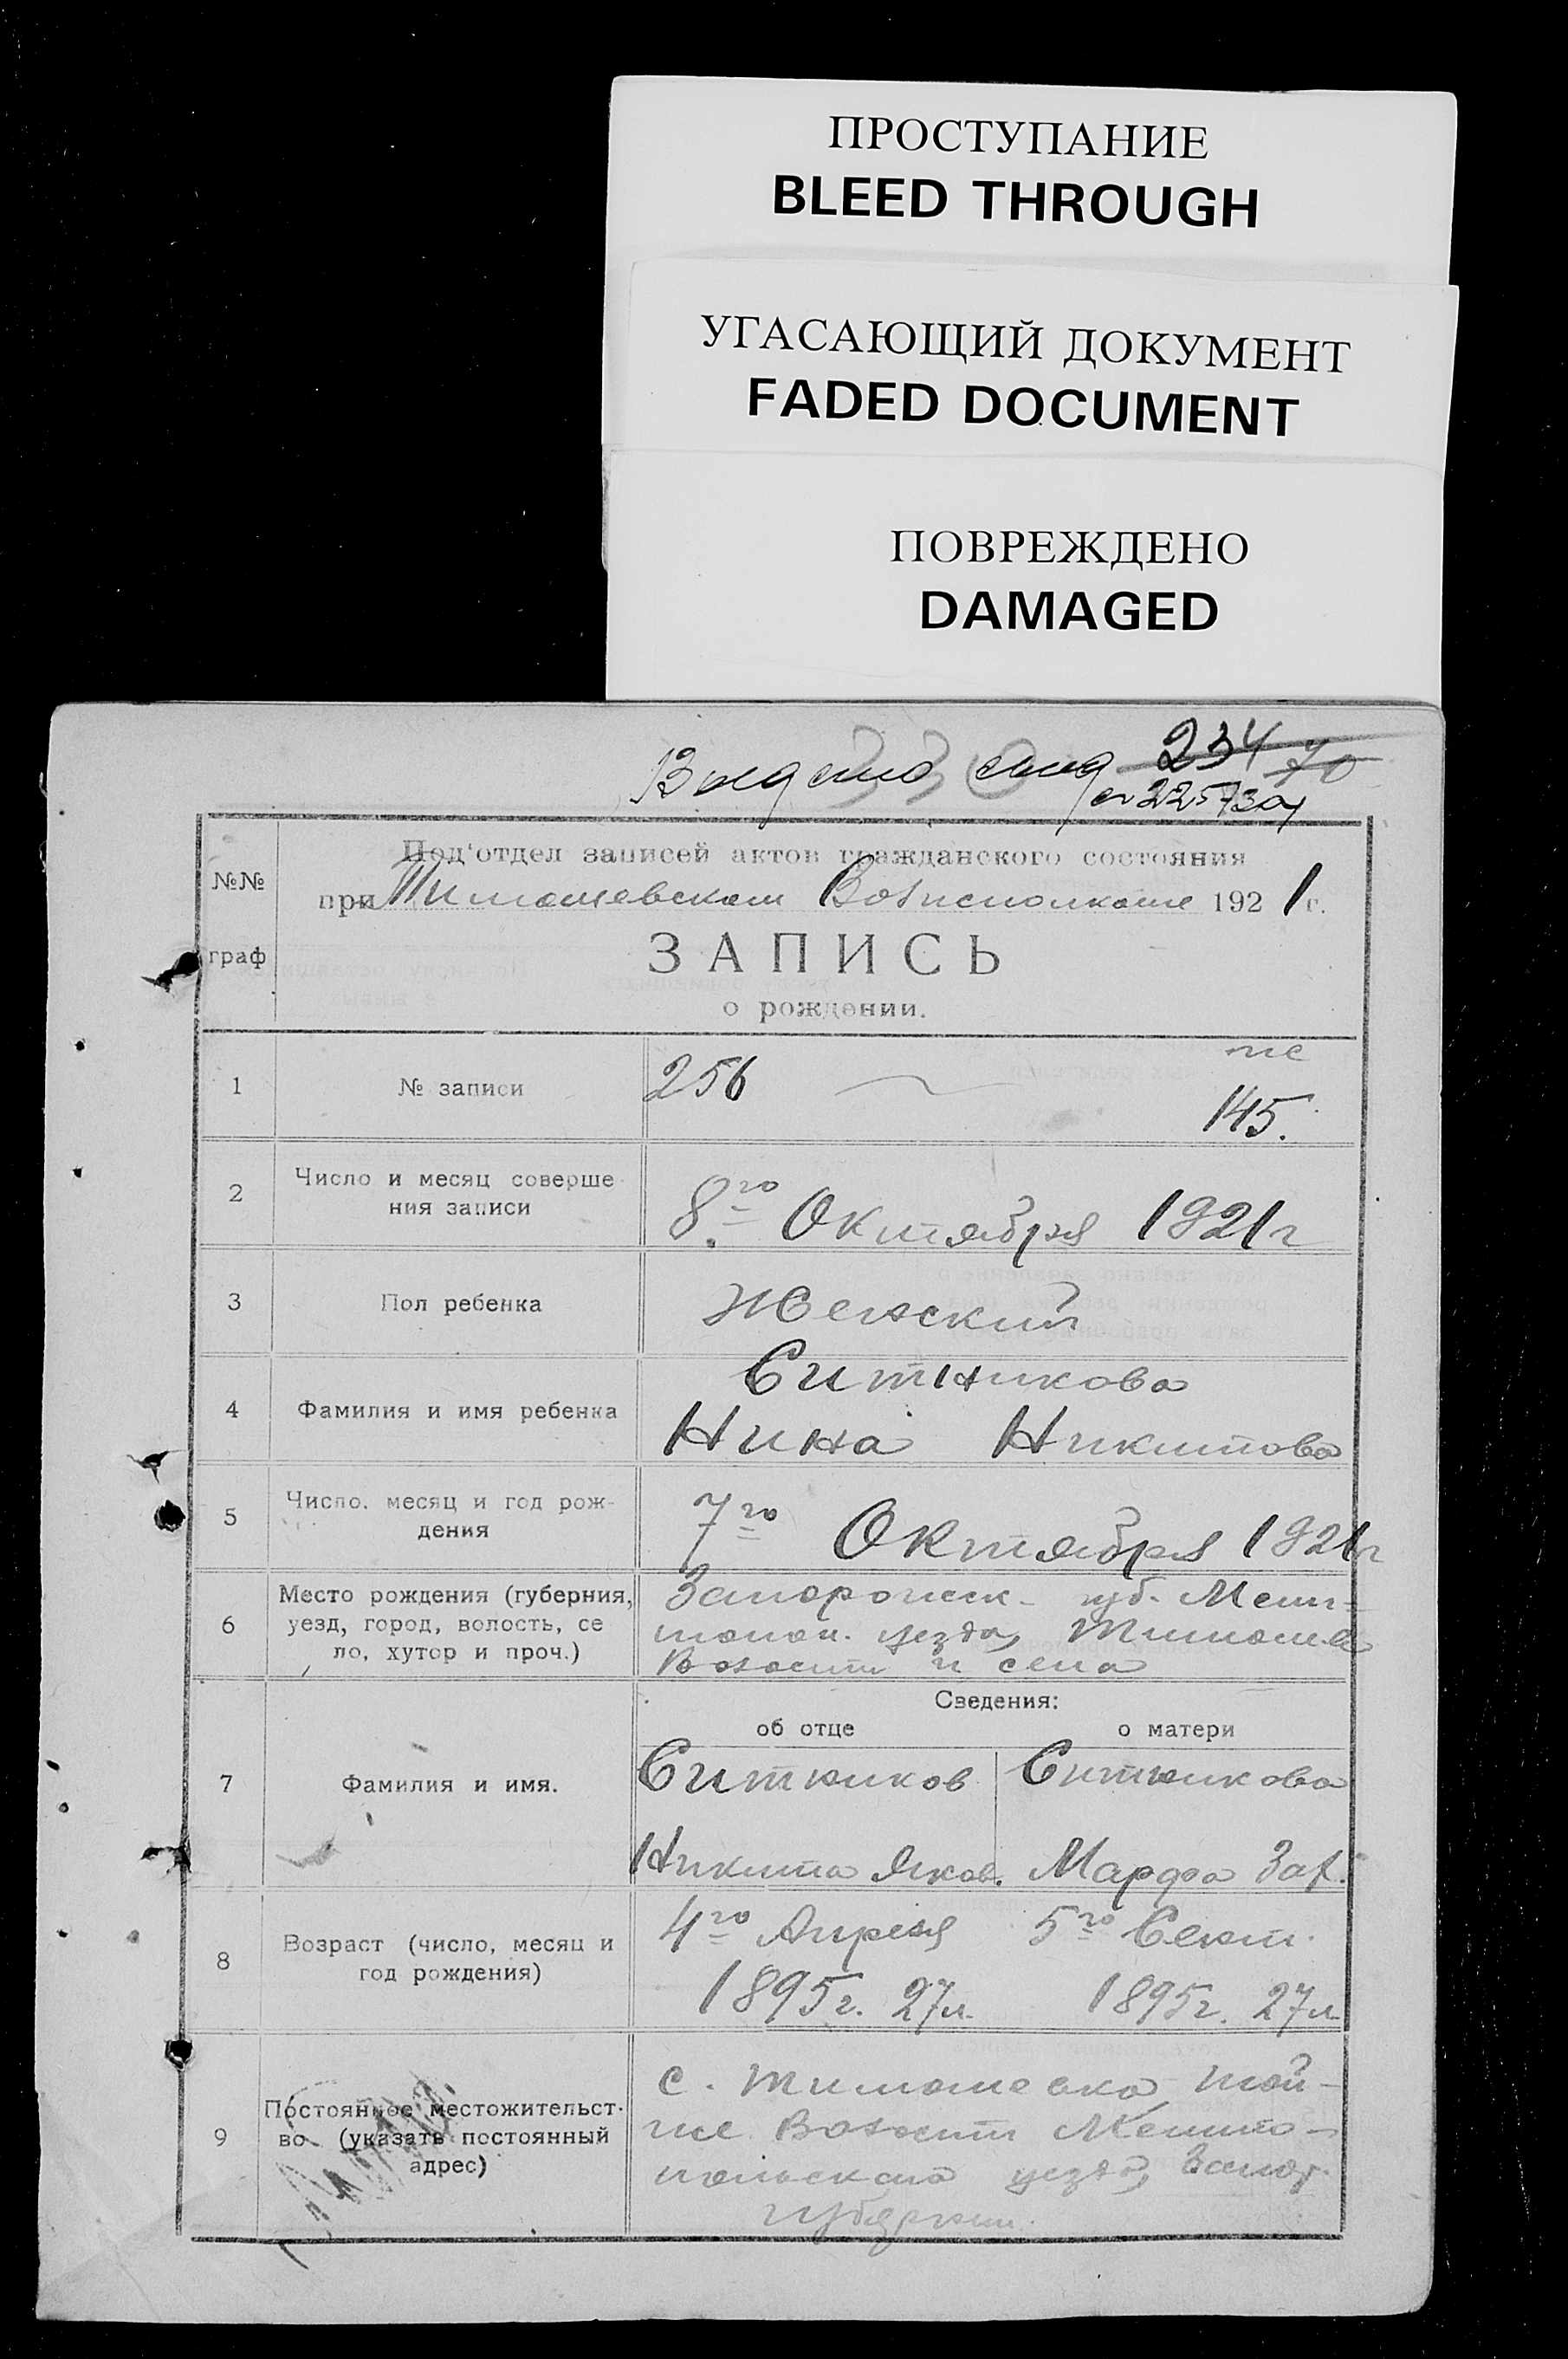 ПРОСТУПАНИЕ
BLEED THROUGH
УГАСАЮЩИЙ ДОКУМЕНТ
FADED DOCUMENT
ПОВРЕЖДЕНО
DAMAGED
234 70
225730
Под'отдел записей актов гражданского состояния
№№
при Тимошевском Волисполкоме 1921 г.
граф
ЗАПИСЬ
о рождении.
1 № записи 256
145.
2 Число и месяц соверше
ния записи
8го Октября 1921 г
3 Пол ребенка Женский
4 Фамилия и имя ребенка
Ситникова
Нина Никитова
5 Число, месяц и год рож-
дения
7го Октября 1921 г
6 Место рождения (губерния,
уезд, город, волость, се
ло, хутор и проч.)
Запорожск. губ. Мели-
топол. уезда, Тимошев
Волости и села
Сведения:
об отце о матери
7 Фамилия и имя.
Ситников Ситникова
Никита Яков. Марфа Зах.
8 Возраст (число, месяц и
год рождения)
4го Апреля 5го Сент.
1895 г. 27 л. 1895 г. 27 л.
9 Постоянное местожительст-
во (указать постоянный
адрес)
с. Тимошевка, той-
же Волости Мелито-
польского уезда, Запор.
губернии.